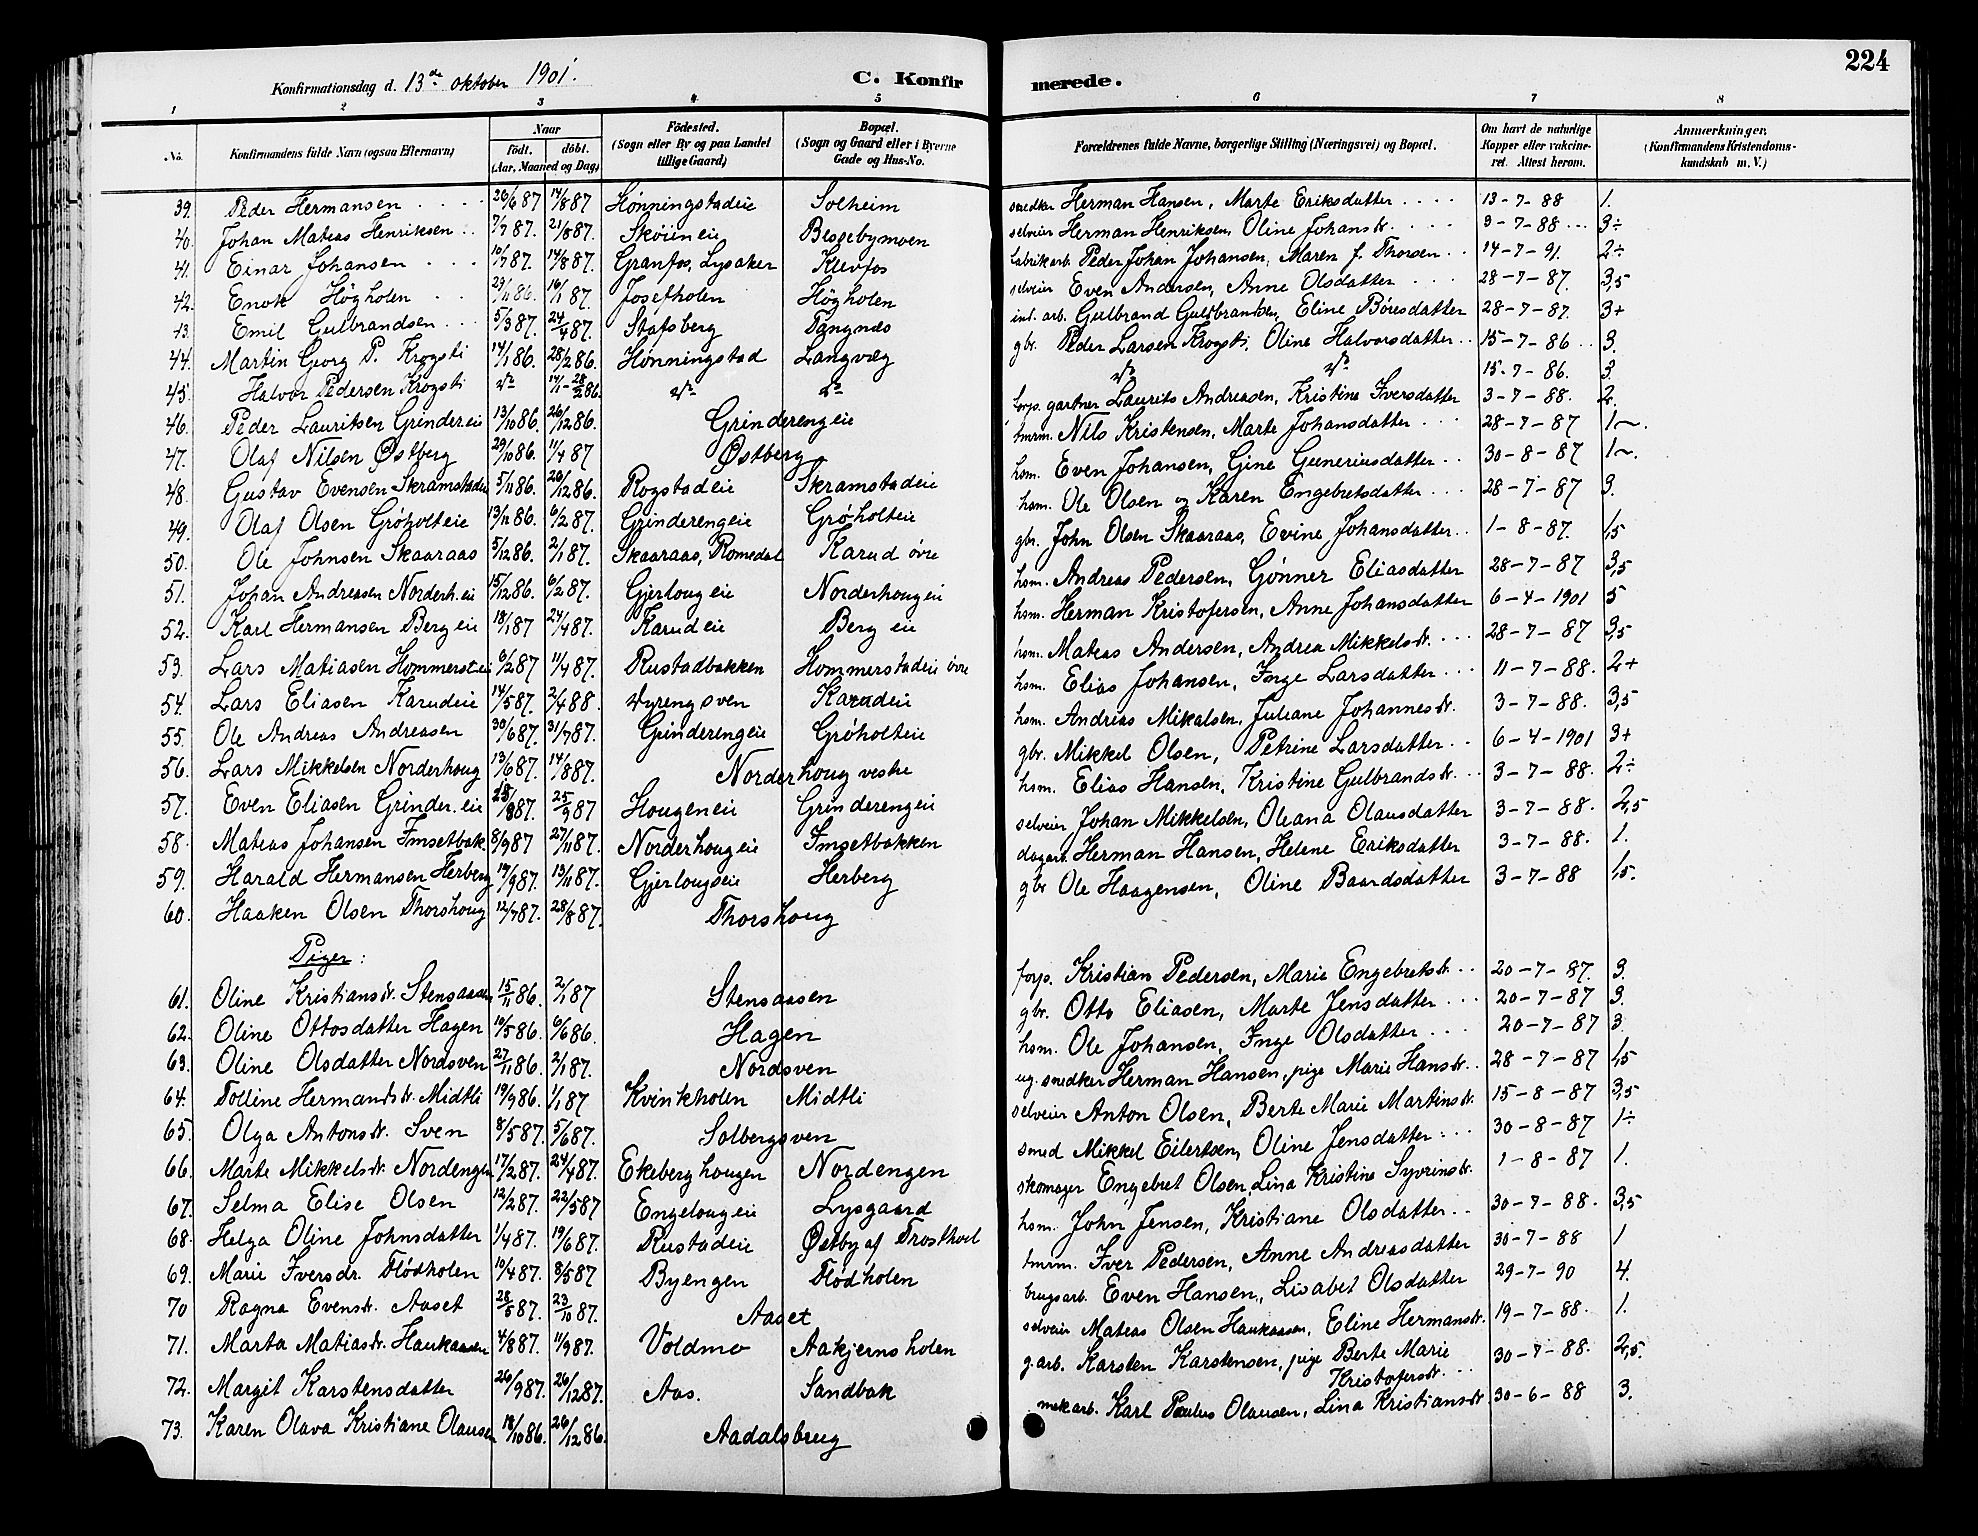 224
Konfirmationsdag d. 13de oktober 1901. C. Konfirmerede.
1 2 3 4 5 6 7 8
No. Konfirmandens fulde Navn (ogsaa Efternavn) Naar Födt. döbt. (Aar, Maaned og Dag) Födested. (Sogn eller By og paa Landet tillige Gaard) Bopæl. (Sogn og Gaard eller i Byerne Gade og Hus-No. Forældrenes fulde Navne, borgerlige Stilling (Næringsvei) og Bopæl. Om havt de naturlige Kopper eller vakcineret. Attest herom. Anmærkninger. (Konfirmandens Kristendomskundskab m. V.)
39. Peder Hermansen 26/6 87 14/8 87 Hønningstadeie Solheim snedker Herman Hansen, Marte Eriksdatter 13-7-88 1.
40. Johan Mateas Henriksen 7/7 87. 21/8 87. Skøieneie Bessebymoen selveier Herman Henriksen, Oline Johansdr. 3-7-88 3÷
41. Einar Johansen 10/7 87. 14/8 87. Granfos, Lysaker Klevfos fabrikarb. Peder Johan Johansen, Maren f. Thorsen 14-7-91 2÷
42. Enok Høgholen 29/11 86. 16/1 87 Josefholen Høgholen selveier Even Andersen, Anne Olsdatter 28-7-87. 3,5
43. Emil Gulbrandsen 5/3 87. 24/4 87. Stafsberg Tangnes int. arb. Gulbrand Gulbrandsen, Eline Böresdatter 28-7-87. 3+
44. Martin Georg P. Krogsti 14/1 86. 28/2 86. Hønningstad Langvæg gbr. Peder Larsen Krogsti, Oline Halvorsdatter 15-7-86 3.
45. Halvor Pedersen Krogsti do 14/1-28/2 86. do do do do 15-7-86. 3.
46. Peder Lauritsen Grinder.eie 13/10 86. 26/12 86. Grinderengeie forp. gartner Laurits Andreasen, Kristine Iversdatter 3-7-88. 2.
47. Olaf Nilsen Østberg 29/10 86. 11/4 87 Østberg tmrm. Nils Kristensen, Marte Johansdatter 28-7-87 1~.
48. Gustav Evensen Skramstadeie 5/11 86. 26/12 86. Rogstadeie Skramstadeie hsm. Even Johansen, Gine Guneriusdatter 30-8-87 1~.
49. Olaf Olsen Grøholteie 13/11 86. 6/2 87. Grinderengeie Grøholteie hsm. Ole Olsen og Karen Engebretsdatter 28-7-87 3.
50. Ole Johnsen Skaaraas 5/12 86. 2/1 87. Skaaraas, Romedal Karud øvre gbr. John Olsen Skaaraas, Evine Johansdatter 1-8-87. 1,5
51. Johan Andreasen Norderh.eie 15/12 86. 6/2 87. Gjerlougeie Norderhougeie hsm. Andreas Pedersen, Gønner Eliasdatter 28-7-87 3,5
52. Karl Hermansen Bergeie 18/1 87 24/4 87. Karudeie Bergeie hsm. Herman Kristofersen, Anne Johansdatter 6-4-1901 5
53. Lars Matiasen Hommerst.eie 6/2 87 11/4 87. Rustadbakken Hommerstadeie øvre hsm. Mateas Andersen, Andrea Mikkelsdr. 28-7-87 3,5
54. Lars Eliasen Karudeie 14/5 87. 2/4 88. Vyrengsven Karudeie hsm. Elias Johansen, Inge Larsdatter 11-7-88. 2+
55. Ole Andreas Andreasen 30/6 87. 31/7 87. Grinderengeie Grøholteie hsm. Andreas Mikalsen, Juliane Johannesdr. 3-7-88. 3,5
56. Lars Mikkelsen Norderhoug 13/6 87. 14/8 87. Norderhoug vestre gbr. Mikkel Olsen, Petrine Larsdatter 6-4-1901 3+
57. Even Eliasen Grinder.eie 87. 25/9 87 Hougeneie Grinderengeie hsm. Elias Hansen, Kristine Gulbrandsdr. 3-7-88. 2÷
58. Mateas Johansen Imsetbak. 8/9 87 27/11 87. Norderhougeie Imsetbakken selveier Johan Mikkelsen, Oleana Olausdatter 3-7-88. 2,5
59. Harald Hermansen Herberg 19/9 87. 13/11 87. Gjerlougseie Herberg dagarb. Herman Hansen, Helene Eriksdatter 3-7-88. 1.
60. Haaken Olsen Thorshoug 12/7 87. 28/8 87. Thorshoug gbr Ole Haagensen, Oline Baardsdatter 3-7-88 1,5.
Piger:
61. Oline Kristiansdr. Stensaasen 15/11 86. 2/1 87 Stensaasen forp. Kristian Pedersen, Marie Engebretsdr. 20-7-87. 3.
62. Oline Ottosdatter Hagen 10/5 86. 6/6 86. Hagen gbr. Otto Eliasen, Marte Jensdatter 20-7-87 3.
63. Oline Olsdatter Nordsven 27/11 86. 2/1 87. Nordsven hsm. Ole Johansen, Inge Olsdatter 20-7-87 3.
64. Tolline Hermansdr. Midtli 19/9 86. 1/1 87 Kvinkholen Midtli ug. snedker Herman Hansen, pige Marie Hansdr. 28-7-87 1,5
65. Olga Antonsdr. Sven 8/5 87. 5/6 87. Solbergsven selveier Anton Olsen, Berte Marie Martinsdr. 15-8-87 3,5
66. Marte Mikkelsdr. Nordengen 17/2 87. 24/4 87. Ekeberghougen Nordengen smed Mikkel Eilertsen, Oline Jensdatter 30-8-87 1÷
67. Selma Elise Olsen 12/2 87. 22/5 87 Engelougeie Lysgaard skomager Engebret Olsen, Lina Kristine Syverinsdr. 1-8-87 1.
68. Helga Oline Johnsdatter 1/4 87. 19/6 87. Rustadeie Østby af Trosthvet hsm. John Jensen, Kristiane Olsdatter 30-7-88. 3,5
69. Marie Iversdr. Flødholen 10/4 87. 8/5 87 Byengen Flødholen tmrm. Iver Pedersen, Anne Andreasdatter 30-7-88 1
70 Ragna Evensdr. Aaset 28/5 87. 23/10 87. Aaset brugsarb. Even Hansen, Lisabet Olsdatter 29-7-90 4.
71. Marta Matiasdr. Haukaasen 4/8 87. 11/9 87. Voldmo Aakjernsholen selveier Mateas Olsen Haukaasen, Eline Hermansdr. 19-7-88. 1.
72. Margit Karstensdatter 26/9 87. 26/12 87. Aas. Sandbak g.arb. Karsten Karstensen, pige Berte Marie Kristofersdr. 30-7-88. 2,5.
73. Karen Olava Kristiane Olausen 18/10 86. 26/12 86. Aadalsbrug mek.arb. Karl Paulus Olausen, Lina Kristiansdr 30-6-88 3.